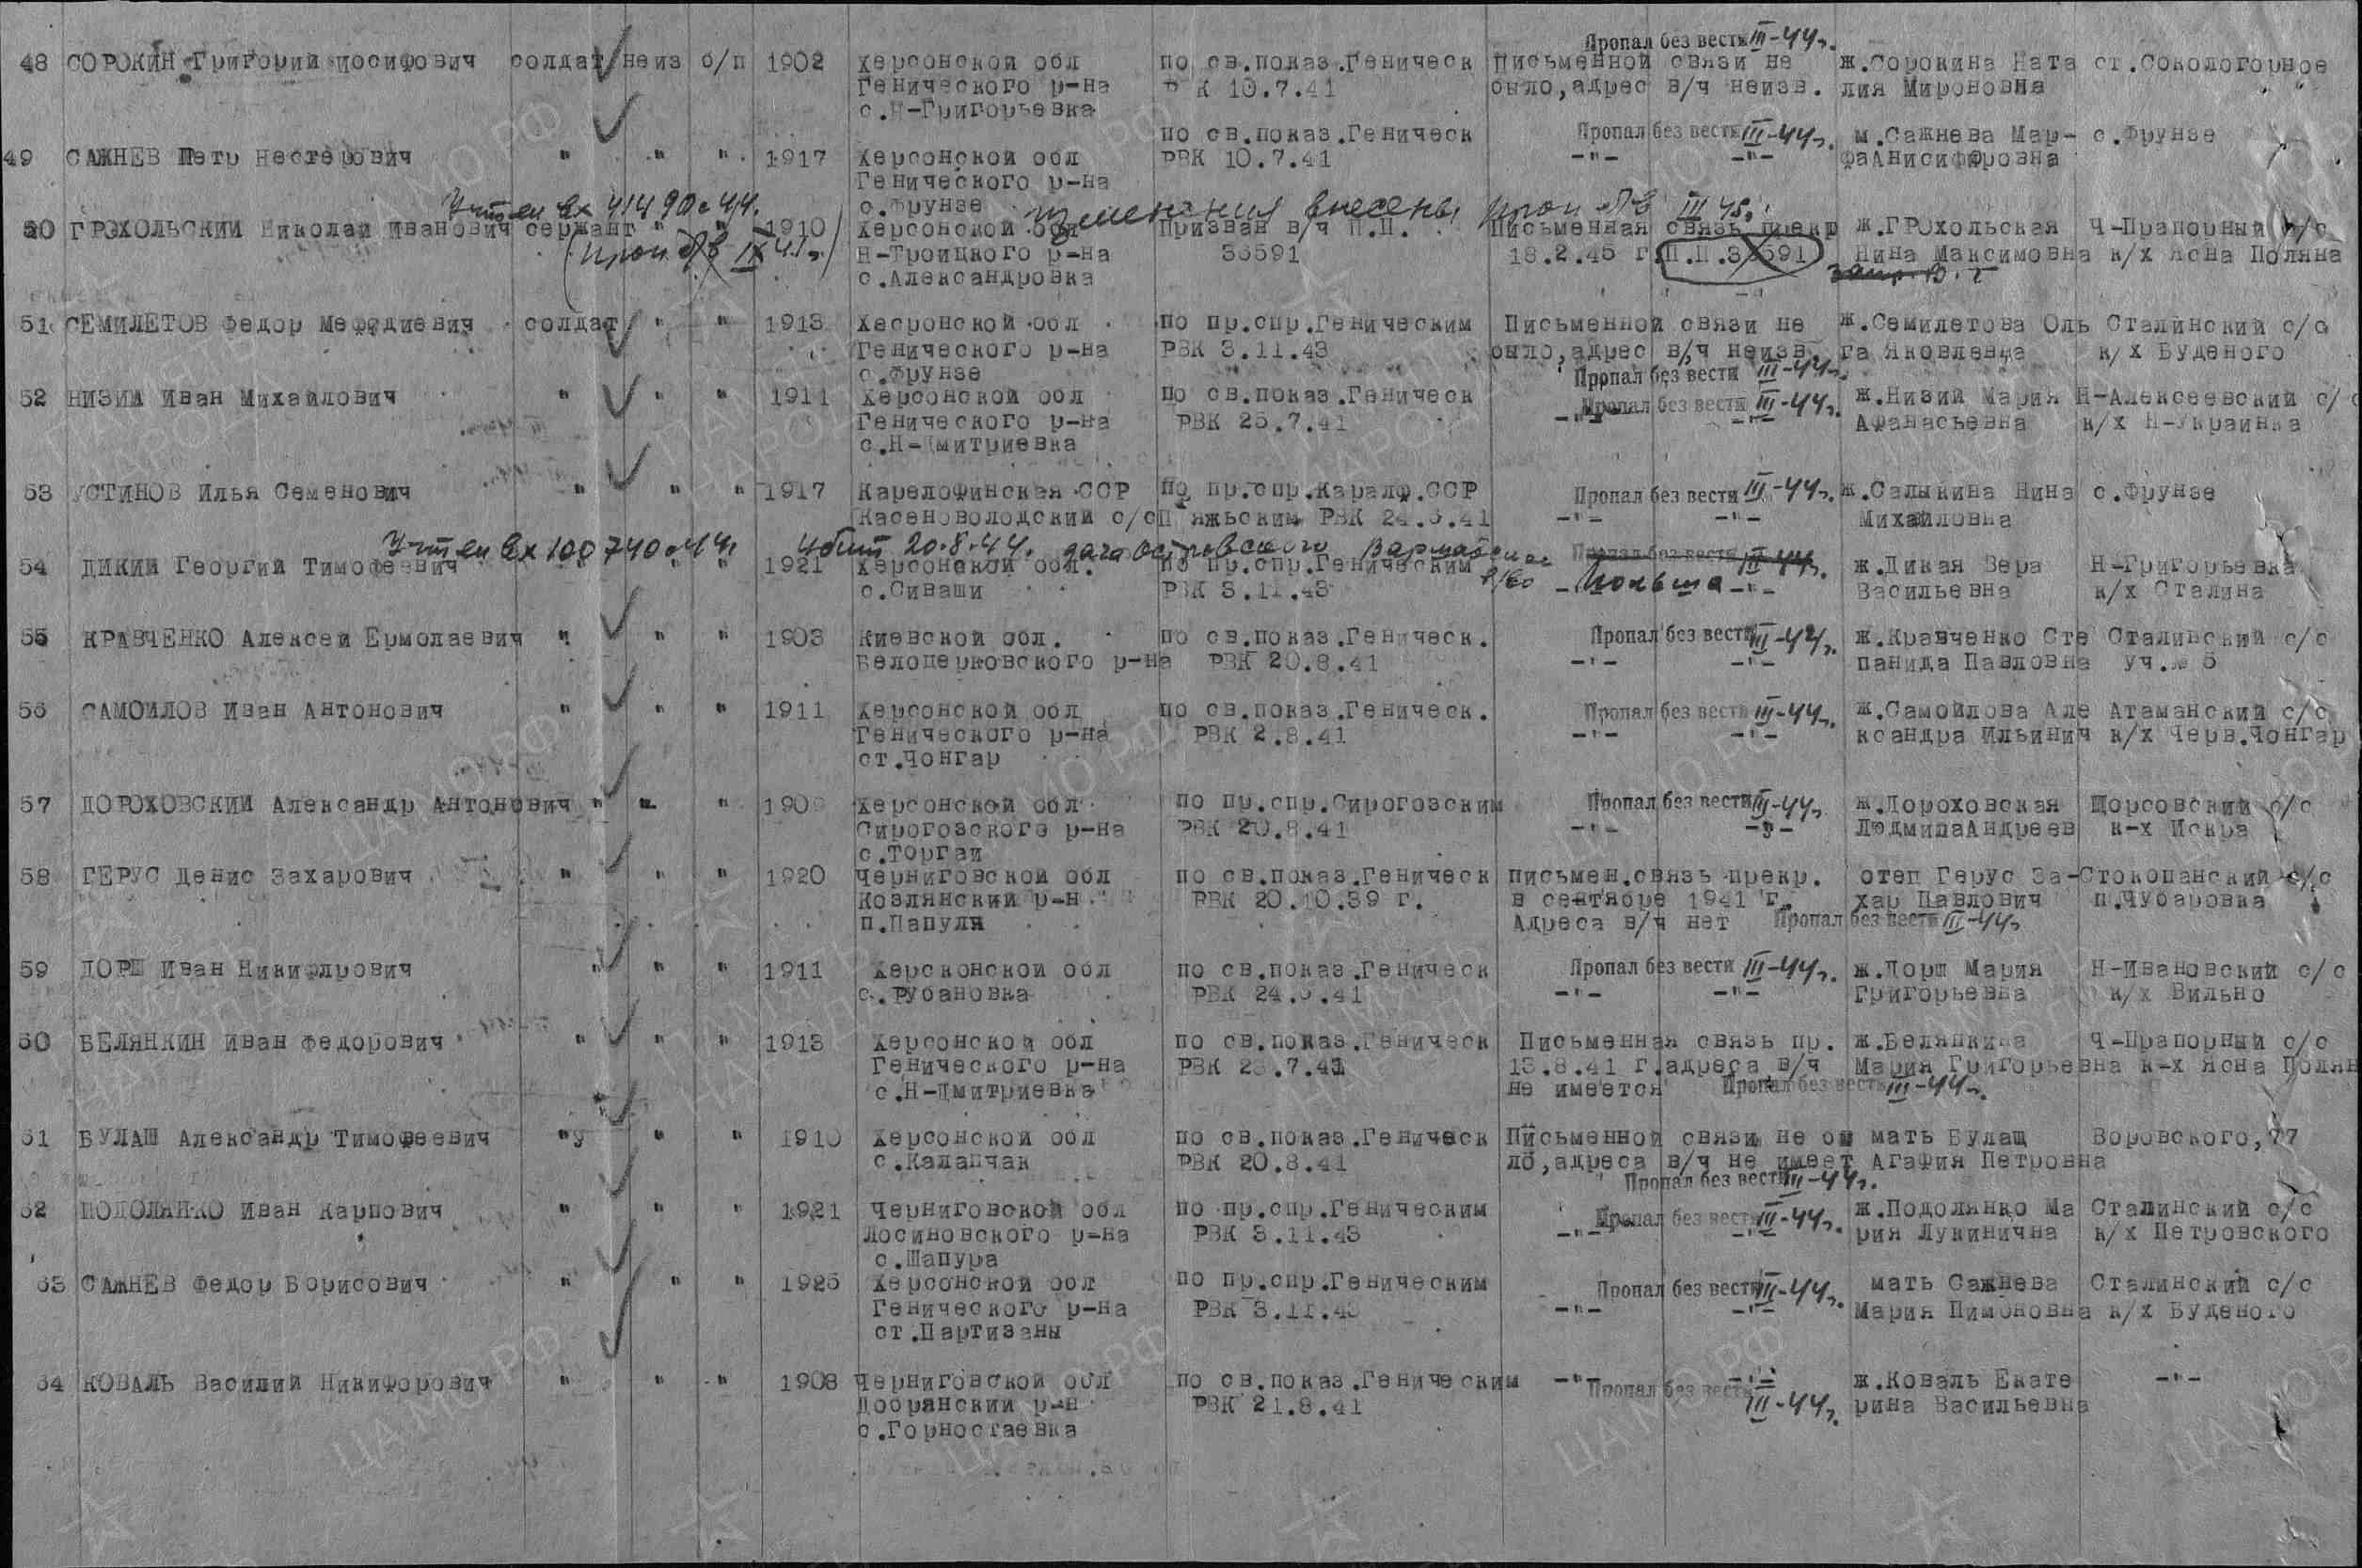 Пропал без вести III-44г.
48 СОРОКИН Григорий Иосифович солдат неиз б/п 1902 Херсонской обл по св.показ.Геническ Письменной связи не ж.Сорокина Ната ст.Сокологорное
Генического р-на Р К 10.7.41 было,адрес в/ч неизв. лия Мироновна
с.Н-Григорьевка
по св.показ.Геническ Пропал без вести III-44г. м.Сажнева Мар- с.Фрунзе
49 САЖНЕВ Петр Нестерович " " " 1917 Херсонской обл РВК 10.7.41 -"- -"- фаАнисифоровна
Генического р-на
Учтен вх 41490с44г. с.Фрунзе изменения внесены проп б/в III 45г.
50 ГРОХОЛЬСКИЙ Николай Иванович сержант " " 1910 Херсонской обл Призван в/ч П.П. Письменная связь прекр ж.ГРОхольская Ч-Прапорный с/с
(проп б/в IX 41г.) Н-Троицкого р-на 36591 18.2.45 г. П.П.36591 Нина Максимовна к/х Ясна Поляна
с.Александровка
51 СЕМИЛЕТОВ Федор Мефедиевич солдат " " 1913 Хесронской обл по пр.спр.Геническим Письменной связи не ж.Семилетова Оль Сталинский с/с
Генического р-на РВК 3.11.43 было,адрес в/ч неизв. га Яковлевна к/х Буденого
с.Фрунзе Пропал без вести III-44г.
52 НИЗИЙ Иван Михайлович " " " 1911 Херсонской обл по св.показ.Геническ Пропал без вести III-44г. ж.Низий Мария Н-Алексеевский с/с
Генического р-на РВК 25.7.41 -"- -"- Афанасьевна к/х Н-Украинка
с.Н-Дмитриевка
53 УСТИНОВ Илья Семенович " " " 1917 Карелофинская ССР по пр.спр.Каралф.ССР Пропал без вести III-44г. ж.Салыкина Нина с.Фрунзе
Касеноволодский с/с П яжьским РВК 24.6.41 -"- -"- Михайловна
Учтен вх 100740с44г. Убит 20.8.44г. дача Островского Варшавская Пропал без вести III 44г.
54 ДИКИЙ Георгий Тимофеевич " " 1921 Херсонской обл. по пр.спр.Геническим ж.Дикая Вера Н-Григорьевка
с.Сиваши РВК 3.11.43 -"- Польша -"- Васильевна к/х Сталина
55 КРАВЧЕНКО Алексей Ермолаевич " " " 1903 Киевской обл. по св.показ.Геническ. Пропал без вести III-44г. ж.Кравченко Сте Сталинский с/с
Белоцерковского р-на РВК 20.8.41 -"- -"- панида Павловна уч.№ 5
56 САМОЙЛОВ Иван Антонович " " " 1911 Херсонской обл по св.показ.Геническ. Пропал без вести III-44г. ж.Самойлова Але Атаманский с/с
Генического р-на РВК 2.8.41 -"- -"- ксандра Ильинич к/х Черв.Чонгар
ст.Чонгар
57 ДОРОХОВСКИЙ Александр Антонович " " " Херсонской обл по пр.спр.Сирогозским Пропал без вести III-44г. ж.Дороховская Щорсовский с/с
Сирогозского р-на РВК 20.8.41 -"- -"- ЛюдмилаАндреев к-х Искра
с.Торгаи
58 ГЕРУС Денис Захарович " " " 1920 Черниговской обл по св.показ.Геническ письмен.связь прекр. отец Герус За- Стокопанский с/с
Козлянский р-н РВК 20.10.39 г. в сентябре 1941 г. хар Павлович п.Чубаровка
п.Папуля Адреса в/ч нет Пропал без вести III-44г.
59 ДОРШ Иван Никифлрович " " " 1911 Херсконской обл по св.показ.Геническ Пропал без вести III-44г. ж.Дорш Мария Н-Ивановский с/с
с.Рубановка РВК 24. .41 -"- -"- Григорьевна к/х Вильно
60 БЕЛЯНКИН Иван Федорович " " " 1913 Херсонской обл по св.показ.Геническ Письменная связь пр. ж.Белянкина Ч-Прапорный с/с
Генического р-на РВК 23.7.41 13.8.41 г.адреса в/ч Мария Григорьевна к-х Ясна Полян
с.Н-Дмитриевка не имеется Пропал без вести III-44г.
61 БУЛАШ Александр Тимофеевич " " " 1910 Херсонской обл по св.показ.Геническ Письменной связи не бы мать Булащ Воровского,77
с.Каланчак РВК 20.8.41 ло,адреса в/ч не имеет Агафия Петровна
Пропал без вести III-44г.
62 ПОДОЛЯНКО Иван Карпович " " " 1921 Черниговской обл по пр.спр.Геническим Пропал без вести III-44г. ж.Подолянко Ма Сталинский с/с
Лосиновского р-на РВК 3.11.43 -"- -"- рия Лукинична к/х Петровского
с.Шапура
63 САЖНЕВ Федор Борисович " " " 1925 Херсонской обл по пр.спр.Геническим Пропал без вести III-44г. мать Сажнева Сталинский с/с
Генического р-на РВК 3.11.43 -"- -"- Мария Пимоновна к/х Буденого
ст.Партизаны
64 КОВАЛЬ Василий Никифорович " " " 1908 Черниговской обл по св.показ.Геническим -"- Пропал без вести -"- ж.Коваль Екате -"-
Добрянский р-н РВК 21.8.41 III-44г. рина Васильевна
с.Горностаевка